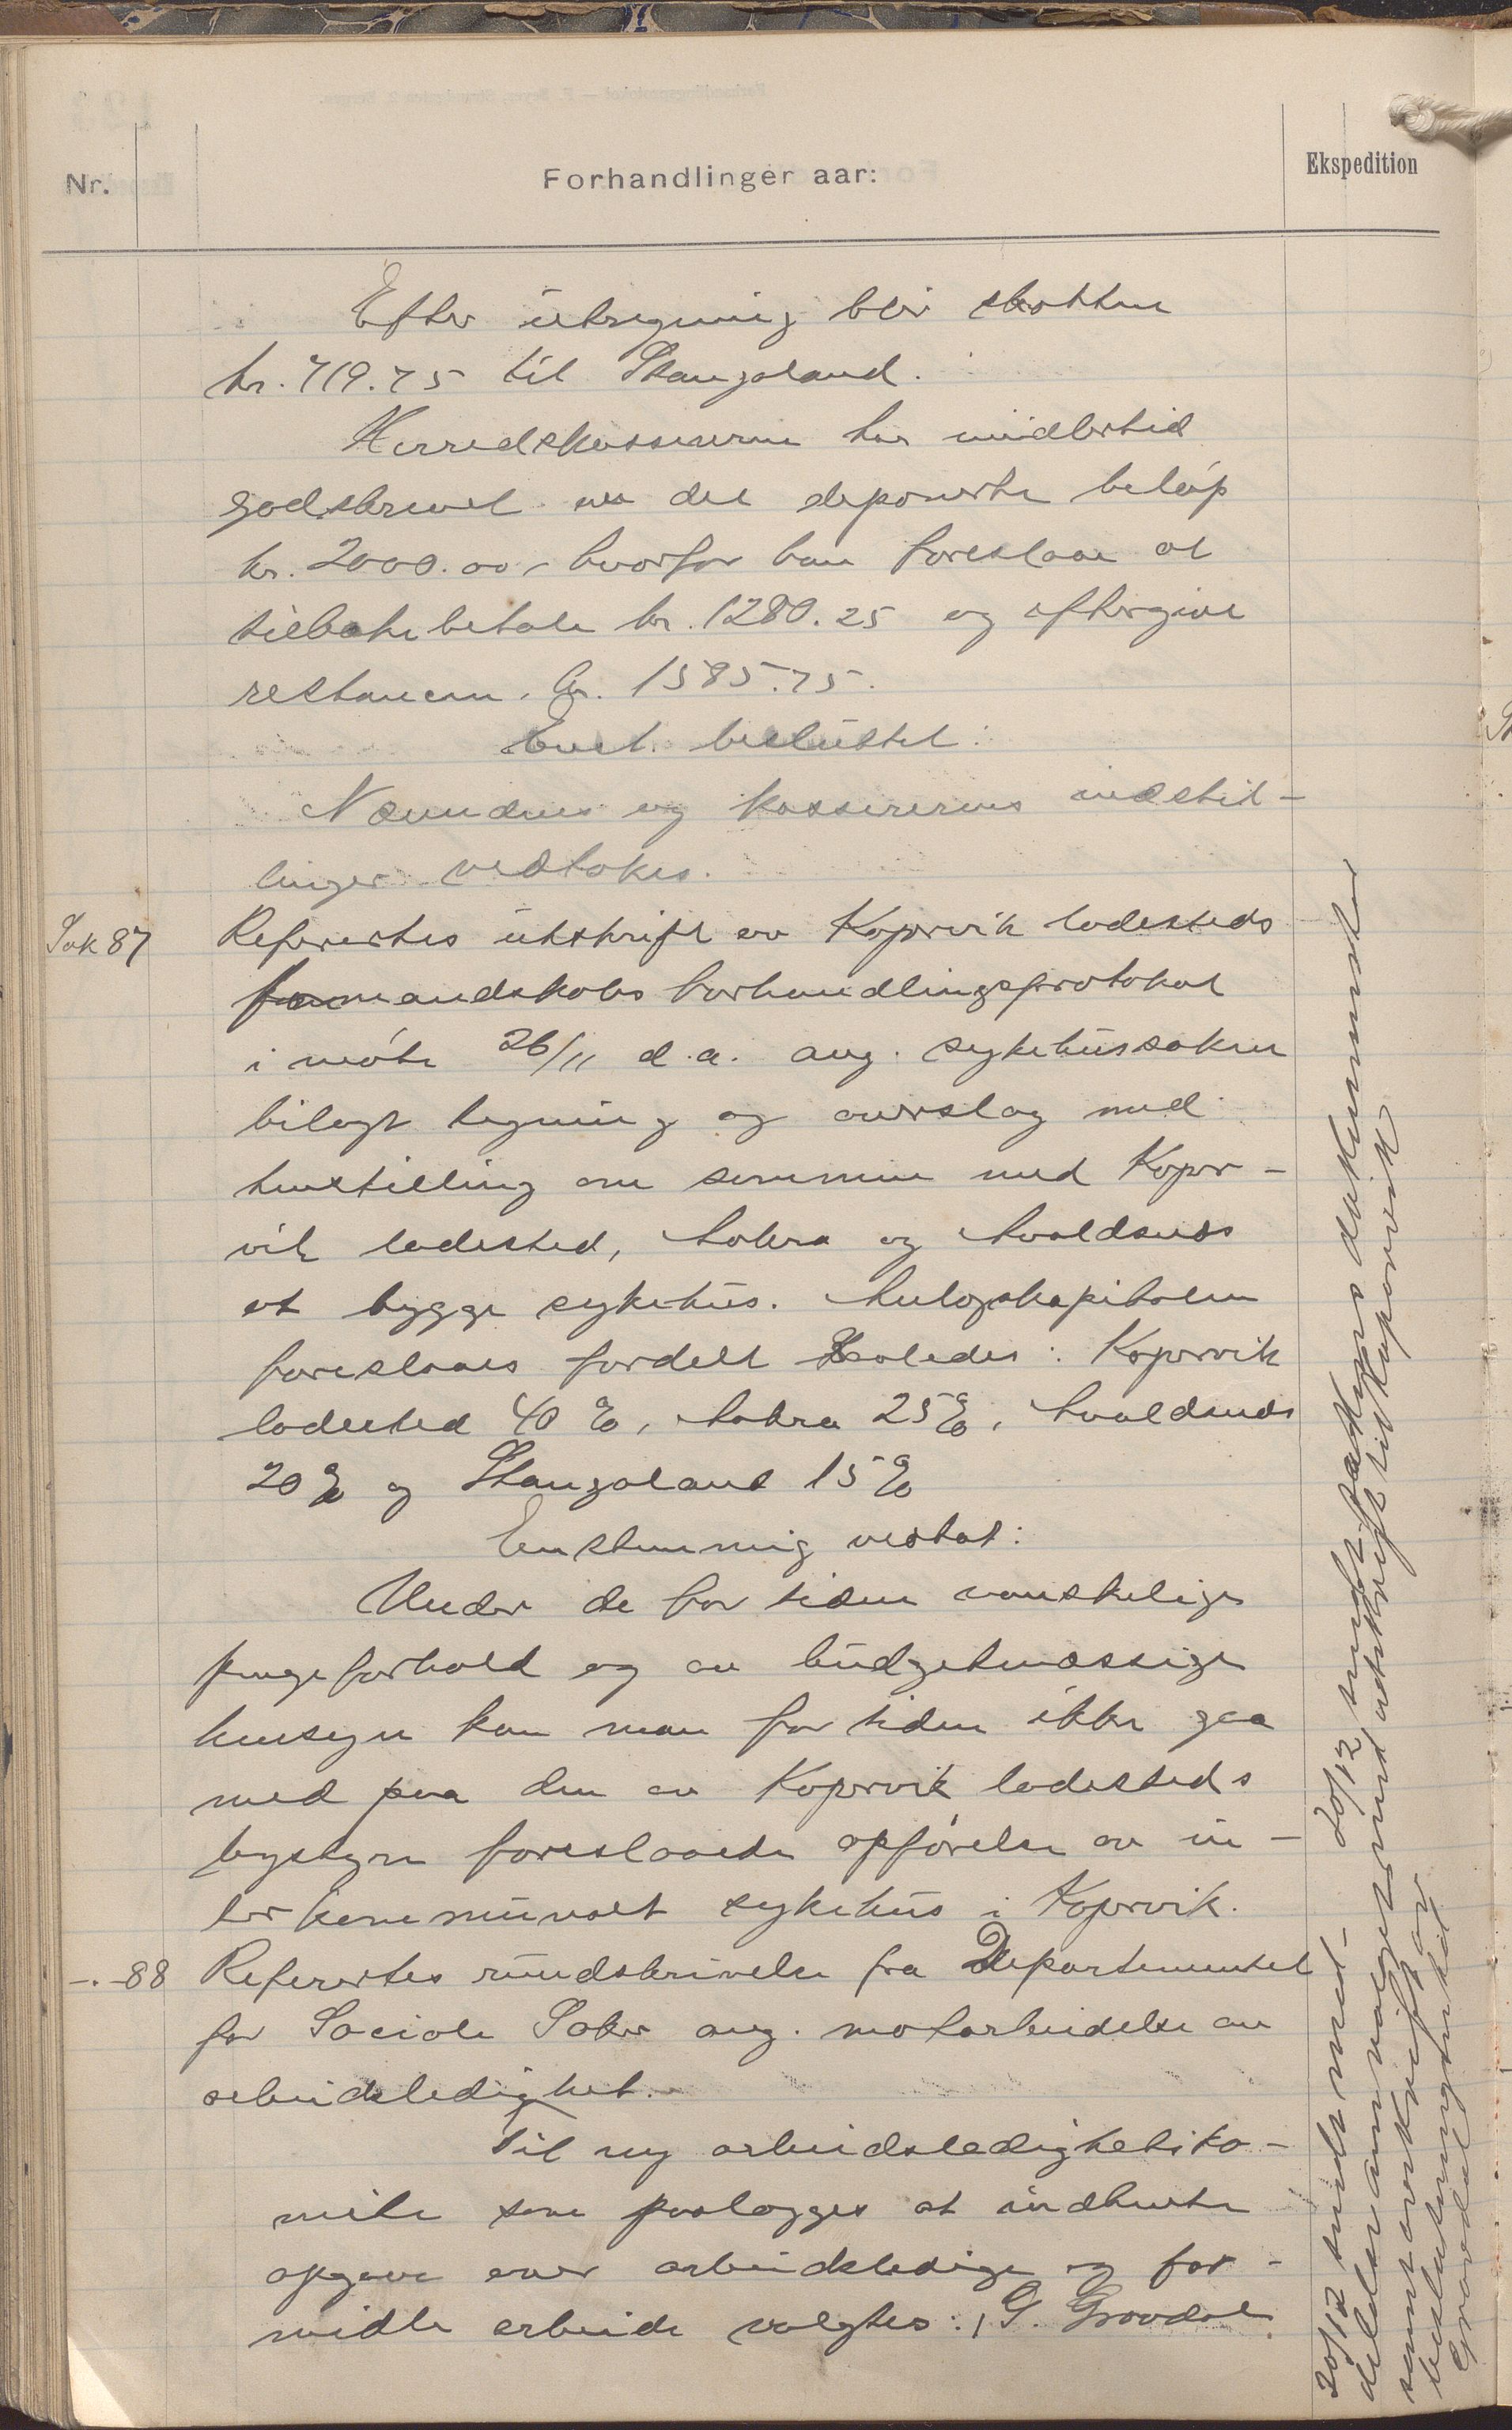 Nr.
Forhandlinger aar:
Ekspedition
Efter utregning blir skatten
kr. 719.75 til Stangaland.
Herredskassereren har imidlertid
godskrevet det deponerte beløp
kr. 2000.00, hvorfor han foreslaar at
tilbakebetale kr. 1280.25 og eftergive
restancen, kr. 1585.75.
Enst. besluttet:
Nævndens og kassererens indstil-
linger vedtokes.
Sak 87
Refertes utskrift av Kopervik ladesteds
formandskaps forhandlingsprotokol
i møte 26/11 d.a. ang. sykehussaken
bilagt tegning og overslag med
henstilling om sammen med Koper-
vik ladested, Aakra og Avaldsnes
at bygge sykehus. Anlægskapitalen
foreslaaes fordelt saaledes: Kopervik
ladested 40 %, Aakra 25%, Avaldsnes
20% og Stangaland 15%
Enstemmig vedtat:
Under de for tiden vanskelige
pengeforhold og av budgetmæssige
hensyn kan man for tiden ikke gaa
med paa den av Kopervik ladesteds
bystyre foreslaaede opførelse av in-
terkommunalt sykehus i Kopervik.
-.-88
Refertes rundskrivelse fra Departementet
for Sociale Saker ang. motarbeidelse av
arbeidsledighet.
Til ny arbeidsledighetsko-
mite som paalægges at indhente
opgave over arbeidsledige og for-
midle arbeide valgtes: G. Grovdal
20/12 sendt sakens dokumenter
med utskrift til Kopervik
20/12 sendt med-
delelse om valget
samt avskrift av
beslutningen til
Grovdal